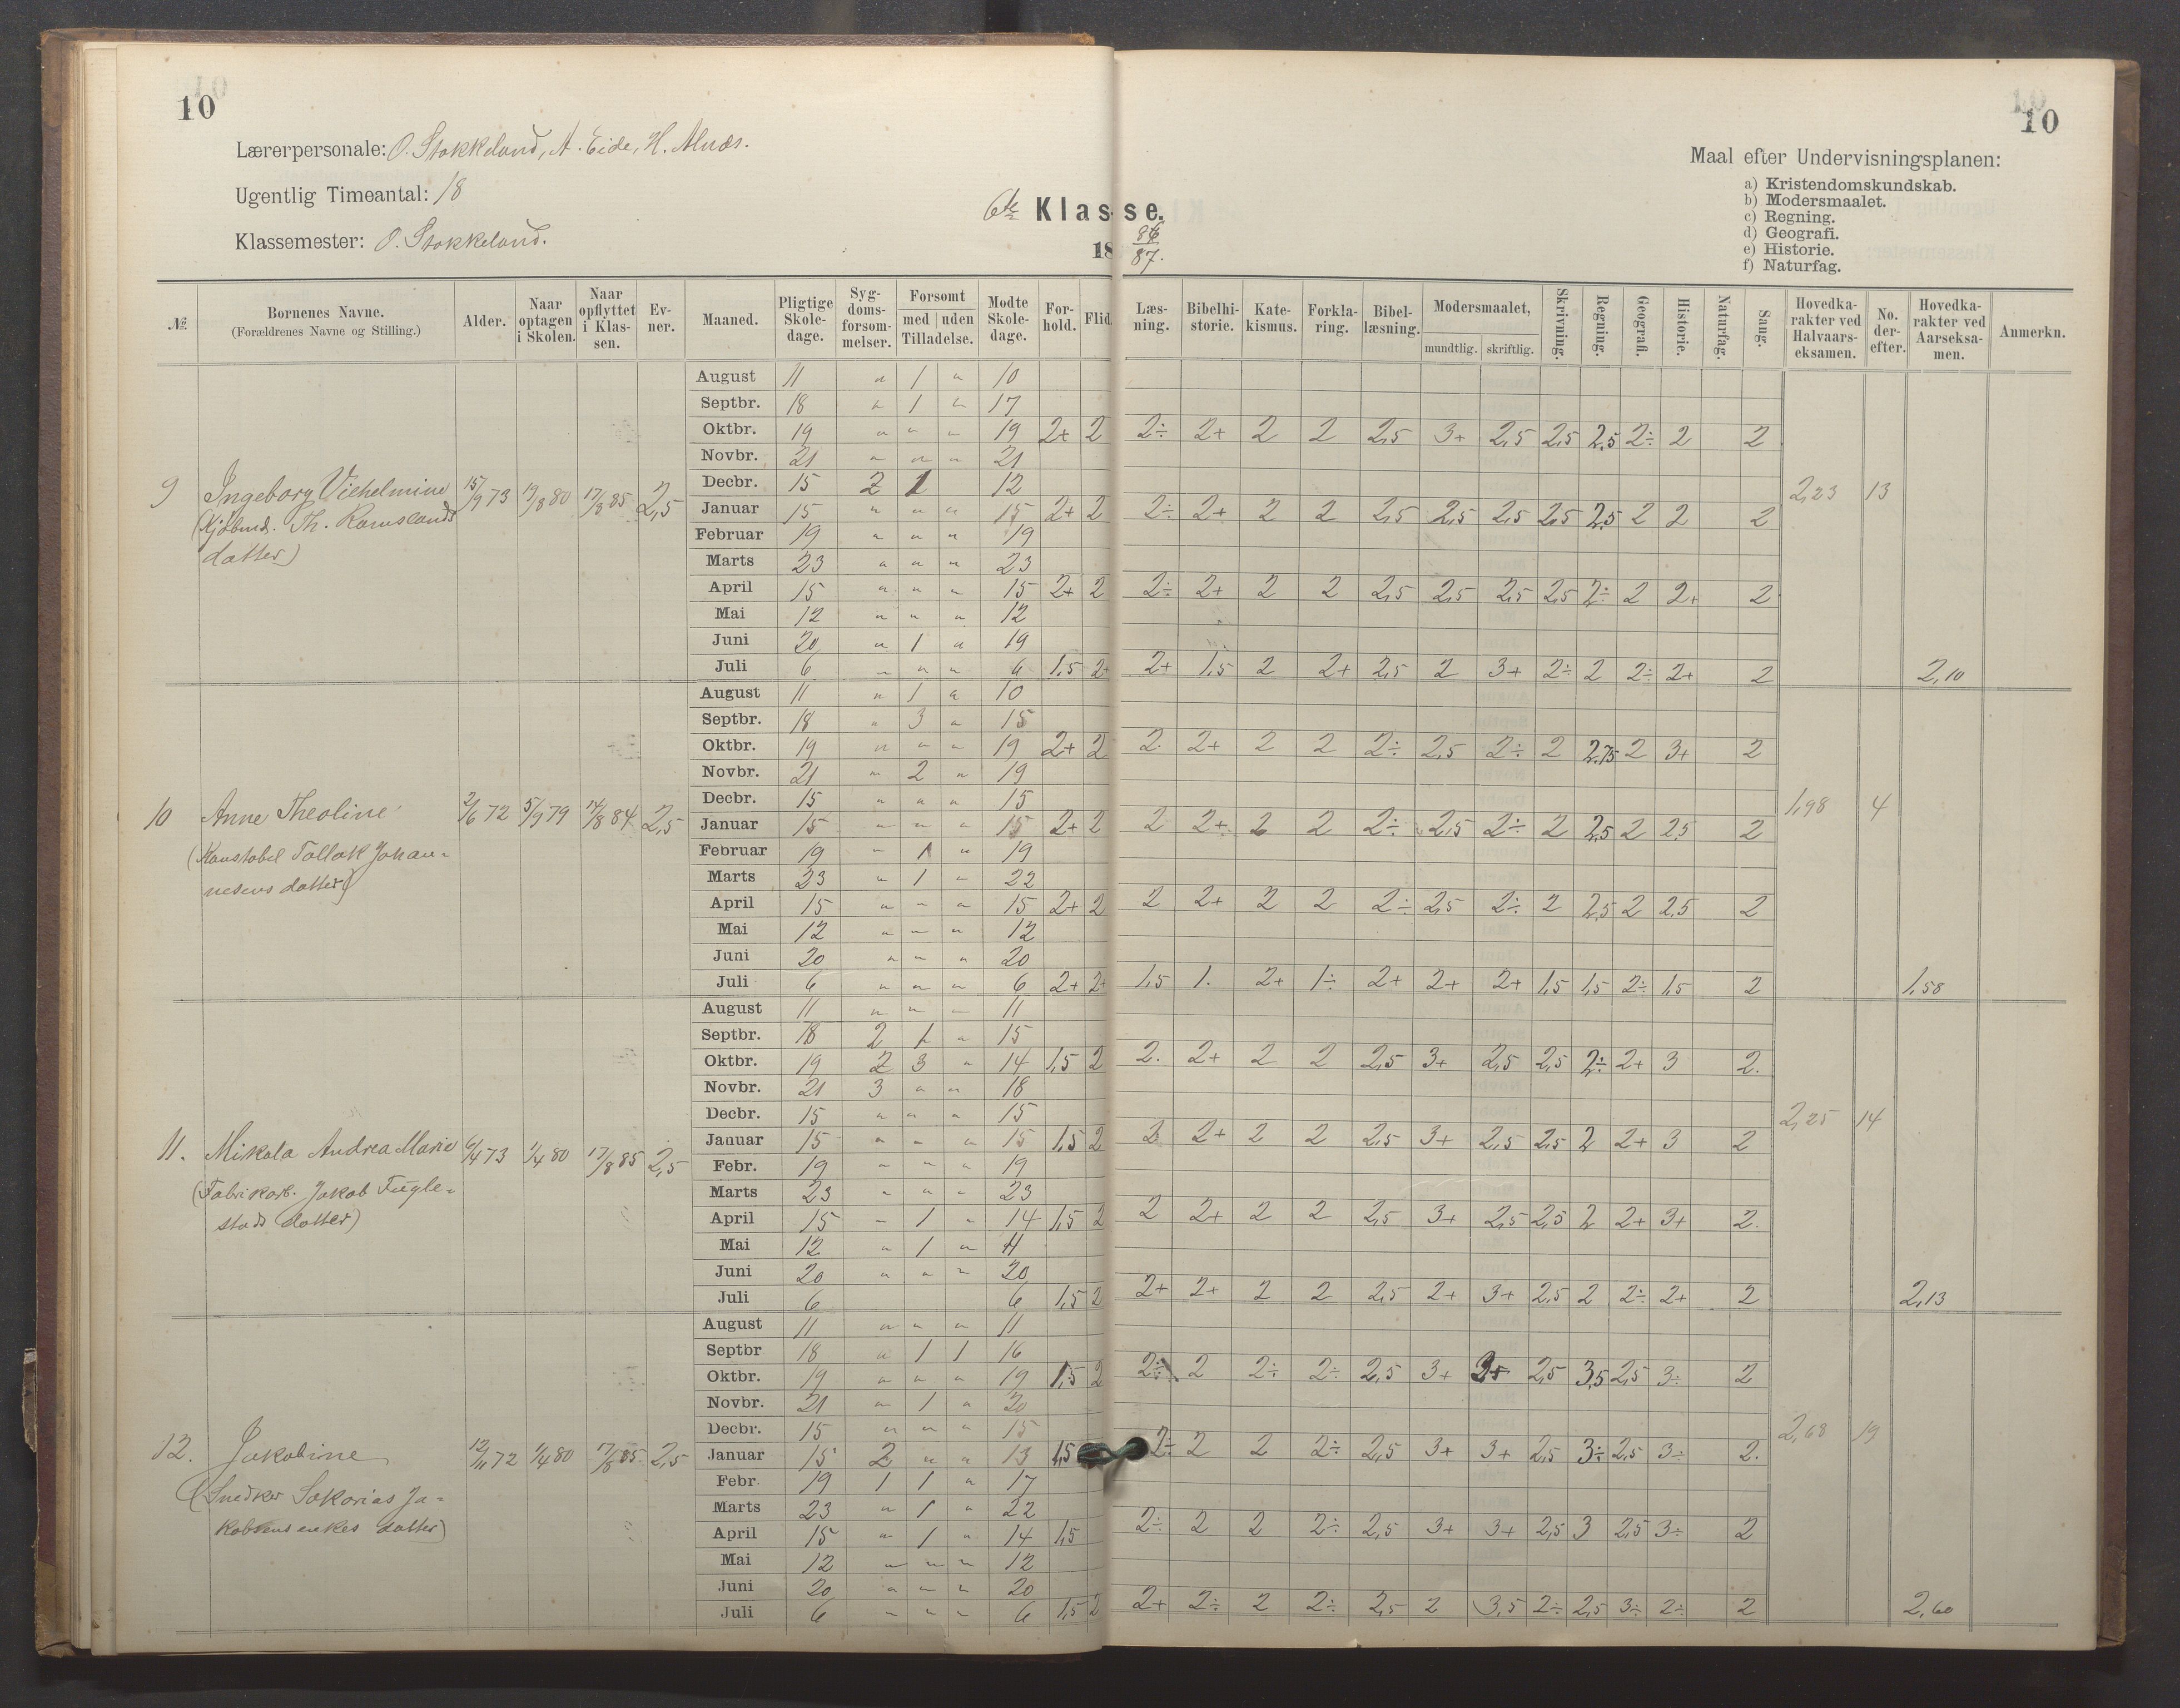 10
10
Lærerpersonale: O. Stokkeland, A. Eide, H. Alnæs.
Ugentlig Timeantal: 18
Klassemester: O. Stokkeland.
6te Klasse.
1886/87.
Maal efter Undervisningsplanen:
a) Kristendomskundskab.
b) Modersmaalet.
c) Regning.
d) Geografi.
e) Historie.
f) Naturfag.
№ | Bornenes Navne. (Forældrenes Navne og Stilling.) | Alder. | Naar optagen i Skolen. | Naar opflyttet i Klassen. | Evner. | Maaned. | Pligtige Skoledage. | Sygdomsforsømmelser. | Forsomt med uden Tilladelse. | Modte Skoledage. | Forhold. | Flid. | Læsning. | Bibelhistorie. | Katekismus. | Forklaring. | Bibellæsning. | Modersmaalet, mundtlig. skriftlig. | Skrivning. | Regning. | Geografi. | Historie. | Naturfag. | Sang. | Hovedkarakter ved Halvaarseksamen. | No. derefter. | Hovedkarakter ved Aarseksamen. | Anmerkn.
9 Ingeborg Vilhelmine 15/9 73 19/8 80 17/8 85 2,5
(Kjøbmd. Th. Ramslands
datter)
August 11 " 1 " 10
Septbr. 18 " 1 " 17
Oktbr. 19 " " " 19 2+ 2 2÷ 2+ 2 2 2,5 3+ 2,5 2,5 2,5 2÷ 2 2
Novbr. 21 " " " 21
Decbr. 15 2 1 12 2,23 13
Januar 15 " " " 15 2+ 2 2÷ 2+ 2 2 2,5 2,5 2,5 2,5 2,5 2 2 2
Februar 19 " " " 19
Marts 23 " " " 23
April 15 " " " 15 2+ 2 2÷ 2+ 2 2 2,5 2,5 2,5 2,5 2÷ 2 2+ 2
Mai 12 " " " 12
Juni 20 " 1 " 19
Juli 6 " " " 6 1,5 2+ 2+ 1,5 2 2+ 2,5 2 3+ 2÷ 2 2÷ 2+ 2 2,10
10 Anne Theoline 2/6 72 5/9 79 14/8 84 2,5
(Konstabel Tollak Johan=
nesens datter)
August 11 " 1 " 10
Septbr. 18 " 3 " 15
Oktbr. 19 " " " 19 2+ 2 2. 2+ 2 2 2÷ 2,5 2÷ 2 2,75 2 3+ 2
Novbr. 21 " 2 " 19
Decbr. 15 " " " 15 1,98 4
Januar 15 " " " 15 2+ 2 2 2+ 2 2 2÷ 2,5 2÷ 2 2,5 2 2,5 2
Februar 19 " 1 " 19
Marts 23 " 1 " 22
April 15 " " " 15 2+ 2 2 2+ 2 2 2÷ 2,5 2÷ 2 2,5 2 2,5 2
Mai 12 " " " 12
Juni 20 " " " 20
Juli 6 " " " 6 2+ 2+ 1,5 1. 2+ 1÷ 2+ 2+ 2+ 1,5 1,5 2÷ 1,5 2 1,58
11. Mikala Andrea Marie 6/4 73 1/4 80 17/8 85 2,5
(Fabrikarb. Jakob Fugle=
stads datter)
August 11 " " " 11
Septbr. 18 2 1 " 15
Oktbr. 19 2 3 " 14 1,5 2 2. 2+ 2 2 2,5 3+ 2,5 2,5 2÷ 2+ 3 2.
Novbr. 21 3 " " 18
Decbr. 15 " " " 15 2,25 14
Januar 15 " " " 15 1,5 2 2 2+ 2 2 2,5 3+ 2,5 2,5 2 2+ 3 2
Febr. 19 " " " 19
Marts 23 " " " 23
April 15 " 1 " 14 1,5 2 2 2+ 2 2 2,5 3+ 2,5 2,5 2 2+ 3+ 2.
Mai 12 " 1 " 11
Juni 20 " " " 20
Juli 6 6 1,5 2 2+ 2+ 2 2 2,5 2+ 3+ 2,5 2 2÷ 2+ 2 2,13
12. Jakobine 12/11 72 1/4 80 17/8 85 2,5
(Snedker Sakarias Ja=
kobsens enkes datter)
August 11 " " " 11
Septbr 18 " 1 1 16
Oktbr. 19 " " " 19 1,5 2 2÷ 2 2÷ 2÷ 2,5 3+ 2,5 3,5 2,5 3÷ 2
Novbr. 21 " 1 " 20
Decbr. 15 " " " 15 2,68 19
Januar 15 2 " " 13 1,5 2÷ 2 2 2÷ 2,5 3+ 3+ 2,5 3÷ 2,5 3÷ 2.
Febr. 19 1 1 " 17
Marts 23 " 1 " 22
April 15 " 1 " 14 1,5 2÷ 2 2 2÷ 2,5 3+ 3+ 2,5 3 2,5 3÷ 2
Mai 12 " " " 12
Juni 20 " " " 20
Juli 6 " " " 6 1,5 2 2+ 2÷ 2 2÷ 2,5 2 3,5 2÷ 2,5 3÷ 2÷ 2 2,60